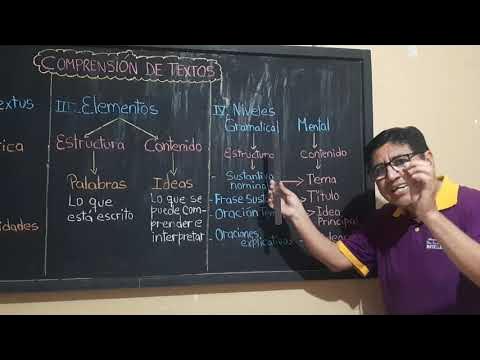 COMPRENSIÓN DE TEXTOS
extus
ica
idades
III. Elementos
Estructura
Contenido
Palabras
Ideas
Lo que
está escrito
Lo que se
puede com-
prender e
interpretar
IV. Niveles
Gramatical
Mental
Estructura
contenido
- Sustantivo
nomina
Tema
- Frase Sust
Título
- Oración
Idea
Principal
- Oraciones
explicativas